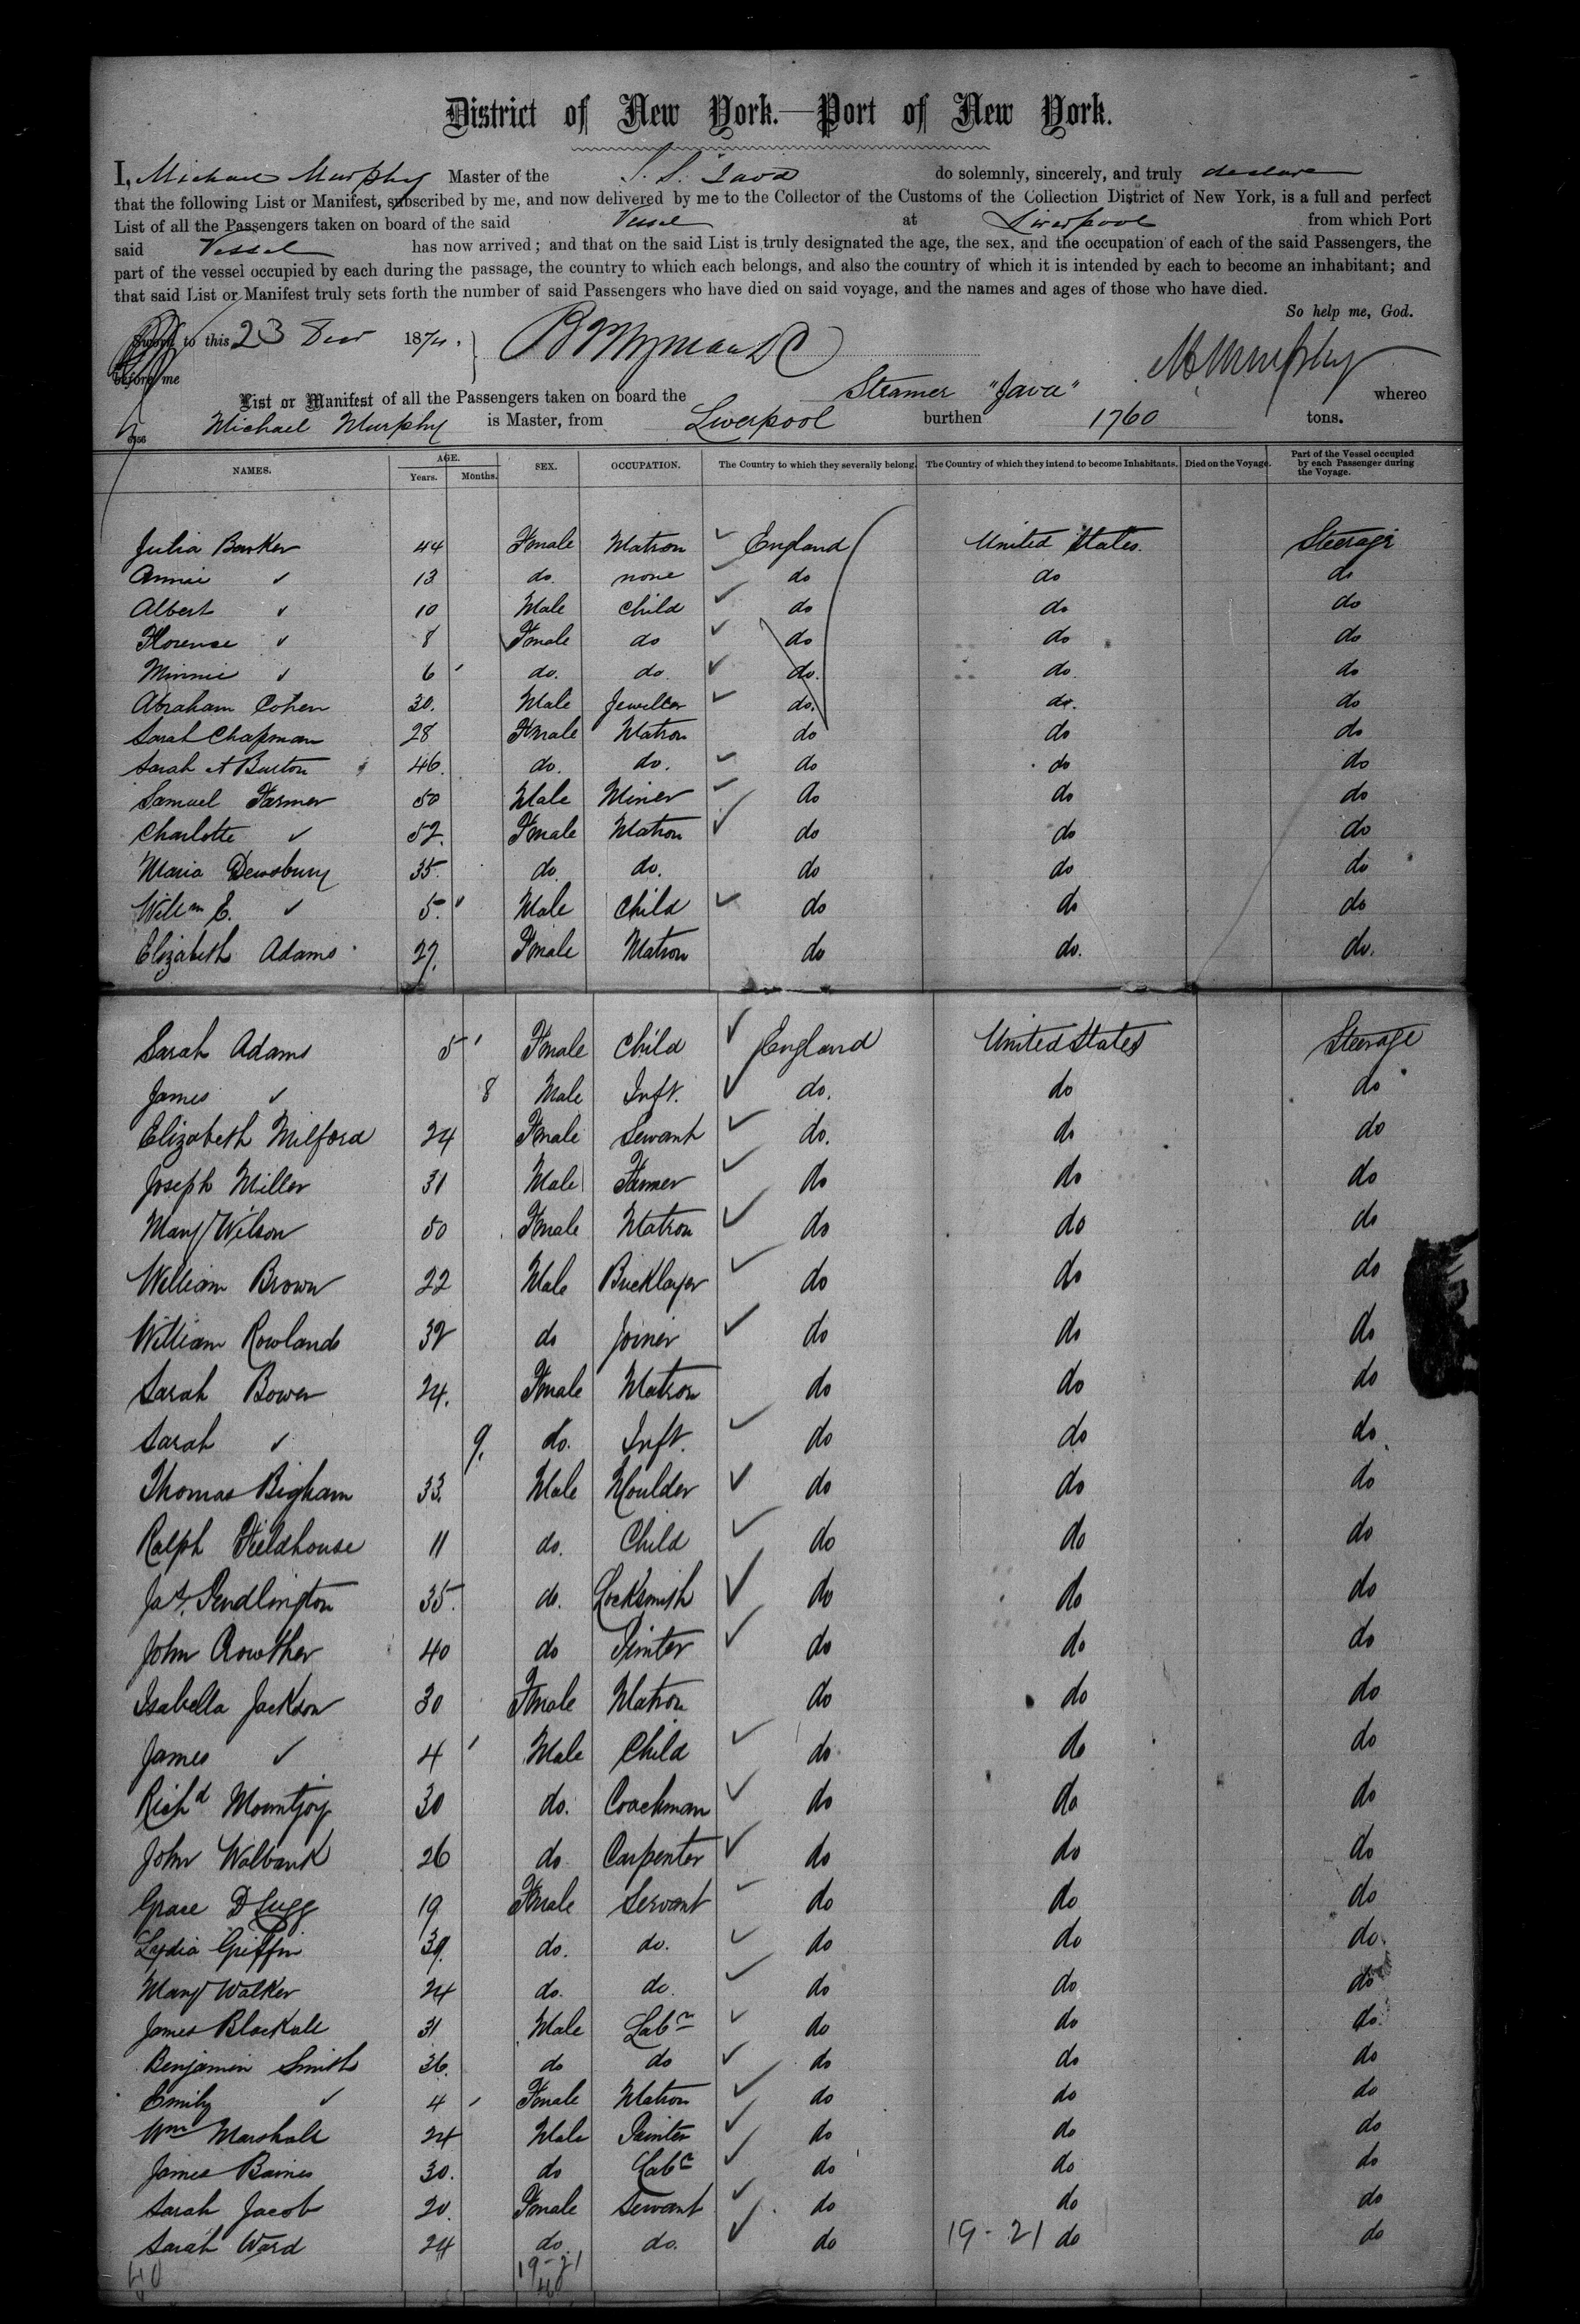 District of New York.—Port of New York.
I, Michael Murphy Master of the S. S. Java do solemnly, sincerely, and truly declare
that the following List or Manifest, subscribed by me, and now delivered by me to the Collector of the Customs of the Collection District of New York, is a full and perfect
List of all the Passengers taken on board of the said Vessel at Liverpool from which Port
said Vessel has now arrived; and that on the said List is truly designated the age, the sex, and the occupation of each of the said Passengers, the
part of the vessel occupied by each during the passage, the country to which each belongs, and also the country of which it is intended by each to become an inhabitant; and
that said List or Manifest truly sets forth the number of said Passengers who have died on said voyage, and the names and ages of those who have died.
So help me, God.
Sworn to this 23 1874.
before me
M Murphy
List or Manifest of all the Passengers taken on board the Steamer "Java" whereo
Michael Murphy is Master, from Liverpool burthen 1760 tons.
NAMES. AGE. Years. Months. SEX. OCCUPATION. The Country to which they severally belong. The Country of which they intend to become Inhabitants. Died on the Voyage. Part of the Vessel occupied by each Passenger during the Voyage.
Julia Barker 44 Female Matron England United States. Steerage
Annie ✓ 13 do. none do do do
Albert ✓ 10 Male Child do do do
Florence ✓ 8 Female do do do do
Minnie ✓ 6 do. do. do. do. do
Abraham Cohen 30. Male Jeweller do. do. do
Sarah Chapman 28 Female Matron do do do
Sarah A Burton 46. do. do. do do do
Samuel Farmer 50 Male Miner do do do
Charlotte ✓ 52. Female Matron do do do
Maria Dewsbury 35. do. do. do do do
Willm E. ✓ 5. Male Child do do do
Elizabeth Adams 27. Female Matron do do. do.
Sarah Adams 5 Female Child England United States Steerage
James ✓ 8 Male Inft. do. do do
Elizabeth Milford 24 Female Servant do. do do
Joseph Miller 31 Male Farmer do do do
Mary Wilson 50 Female Matron do do do
William Brown 22 Male Bricklayer do do do
William Rowlands 32 do Joiner do do do
Sarah Bower 24. Female Matron do do do
Sarah ✓ 9. do. Inft. do do do
Thomas Bigham 33. Male Moulder do do do
Ralph Fieldhouse 11 do. Child do do do
Jas. Pendlington 35. do. Locksmith do do do
John Crowther 40 do do do do
Isabella Jackson 30 Female Matron do do do
James ✓ 4 Male Child do do do
Richd Mountjoy 30 do. Coachman do do do
John Walbank 26 do Carpenter do do do
Grace D Sugg 19 Female Servant do do do
Lydia Griffin 39. do. do. do do do
Mary Walker 24 do. do do do do
James Blackall 31 Male Labr do do do
Benjamin Smith 36. do do do do do
Emily ✓ 4 Female Matron do do do
Wm Marshall 24 Male Painter do do do
James Baines 30. do Labr do do do
Sarah Jacob 20. Female Servant do do do
Sarah Ward 24 do. do. do 19-21 do do
40 19-21
40